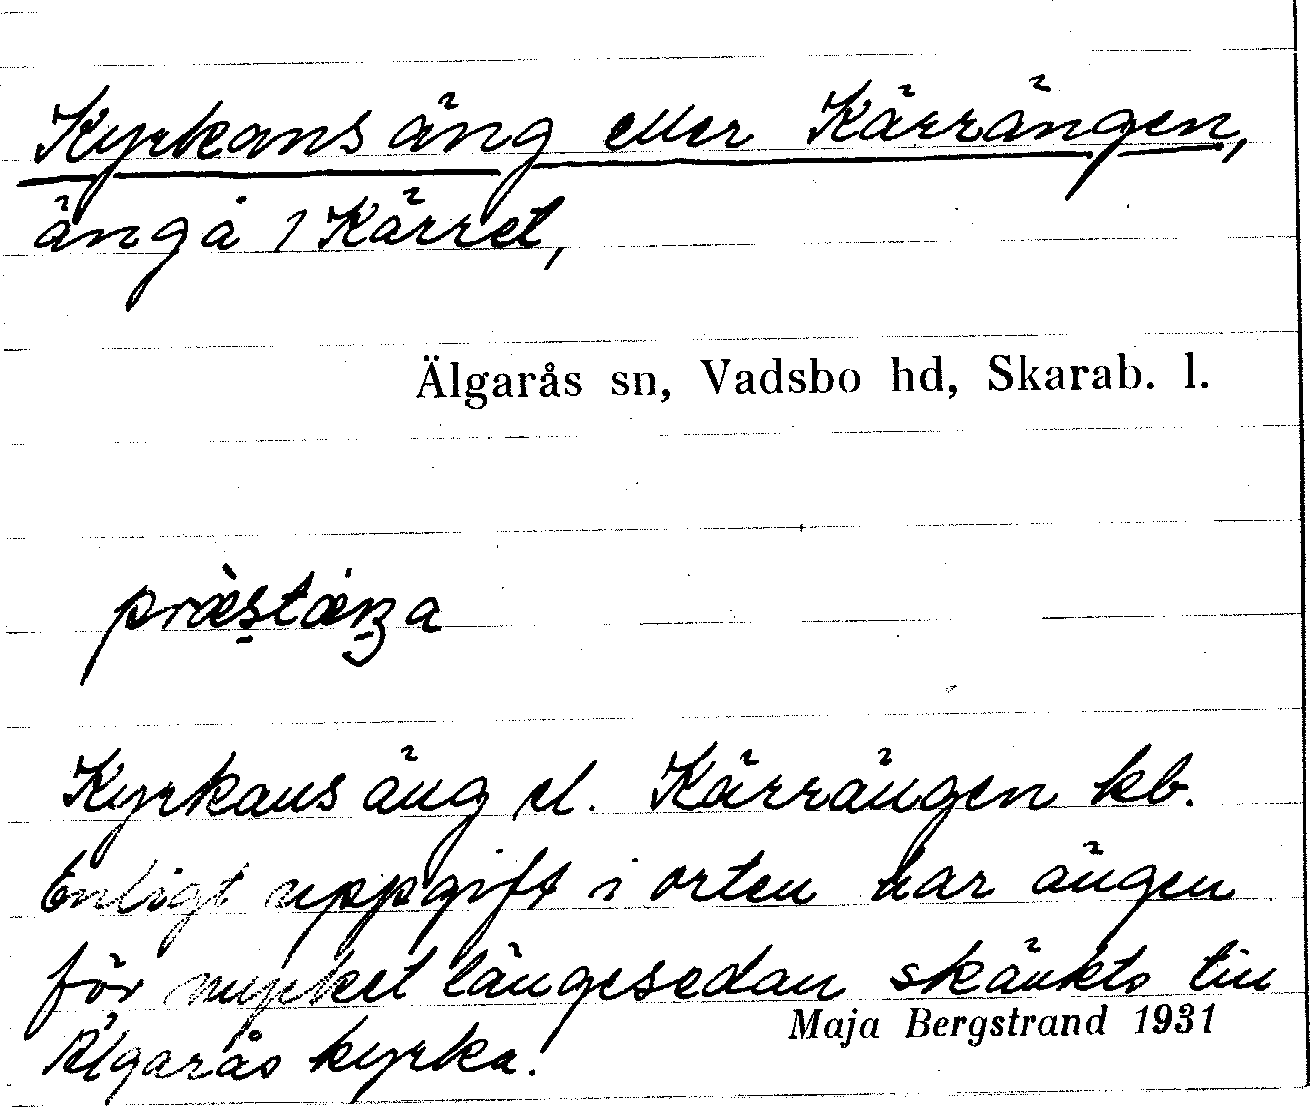 Kyrkans äng eller Kärrängen,
äng å 1 Kärret,
Älgarås sn, Vadsbo hd, Skarab. l.
Kyrkans äng el. Kärrängen kb.
Enligt uppgift i orten har ängen
för mycket längesedan skänkts till
Älgarås kyrka.
Maja Bergstrand 1931